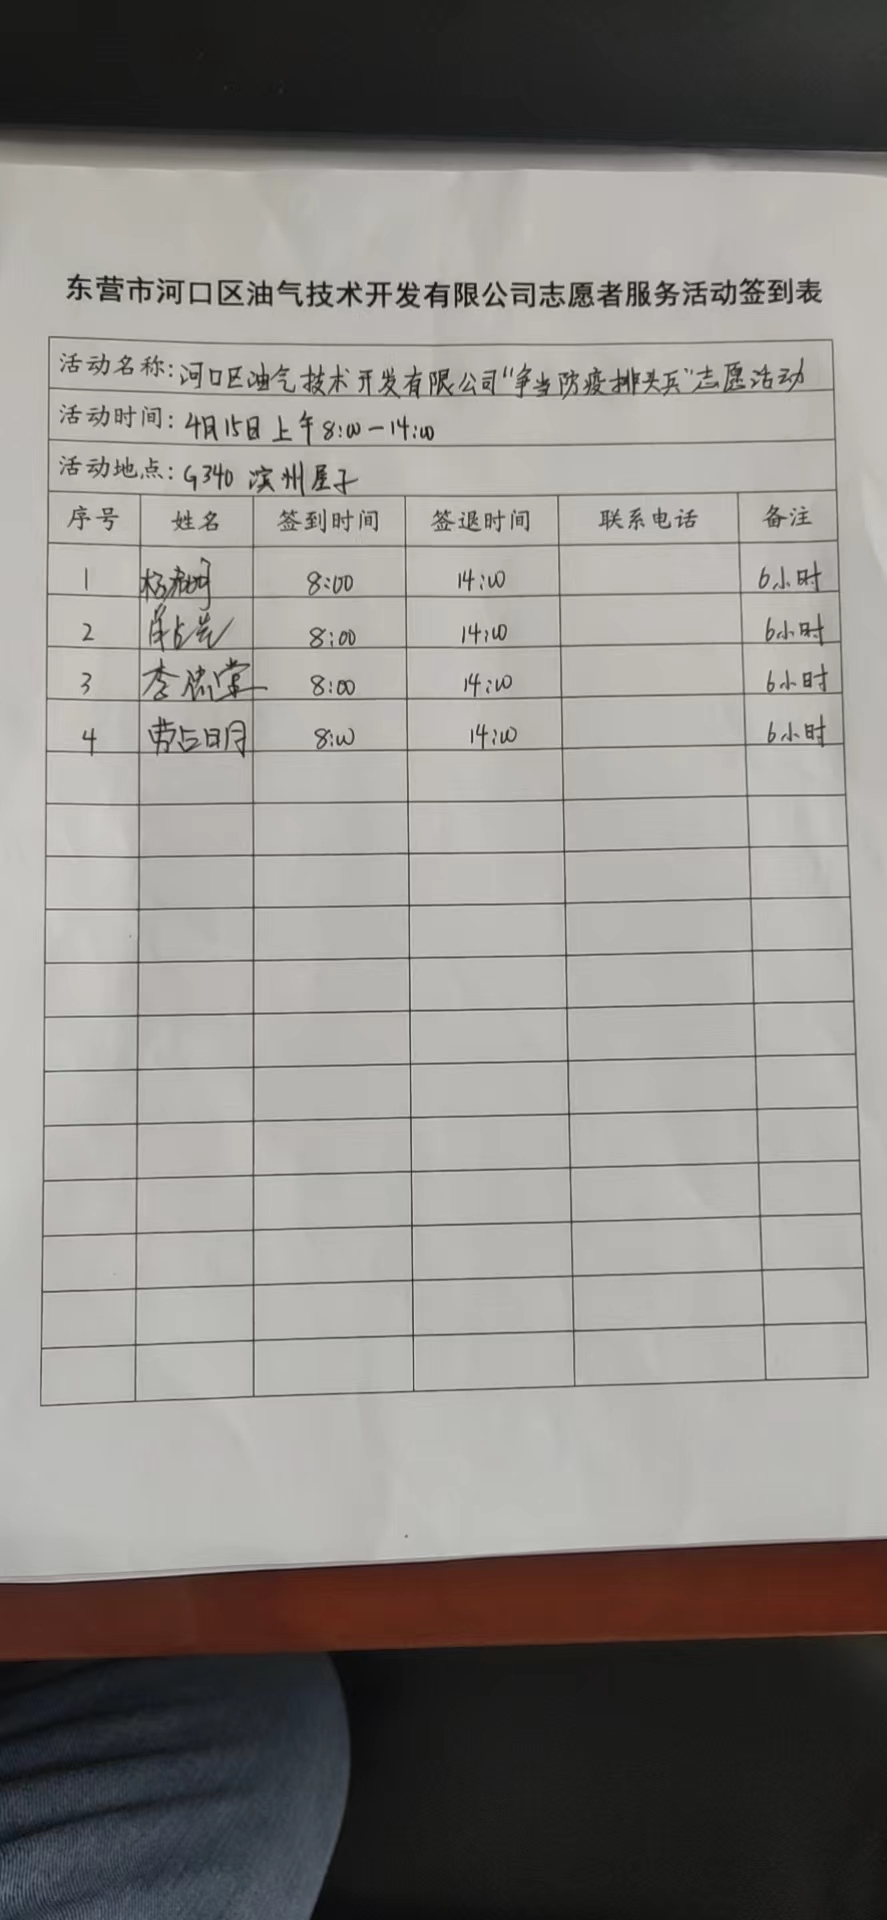 东营市河口区油气技术开发有限公司志愿者服务活动签到表
活动名称:河口区油气技术开发有限公司“争当防疫排头兵”志愿活动
活动时间:4月15日上午8:00-14:00
活动地点:G340 滨州屋子
序号 姓名 签到时间 签退时间 联系电话 备注
1 8:00 14:00 6小时
2 8:00 14:00 6小时
3 李 8:00 14:00 6小时
4 8:00 14:00 6小时